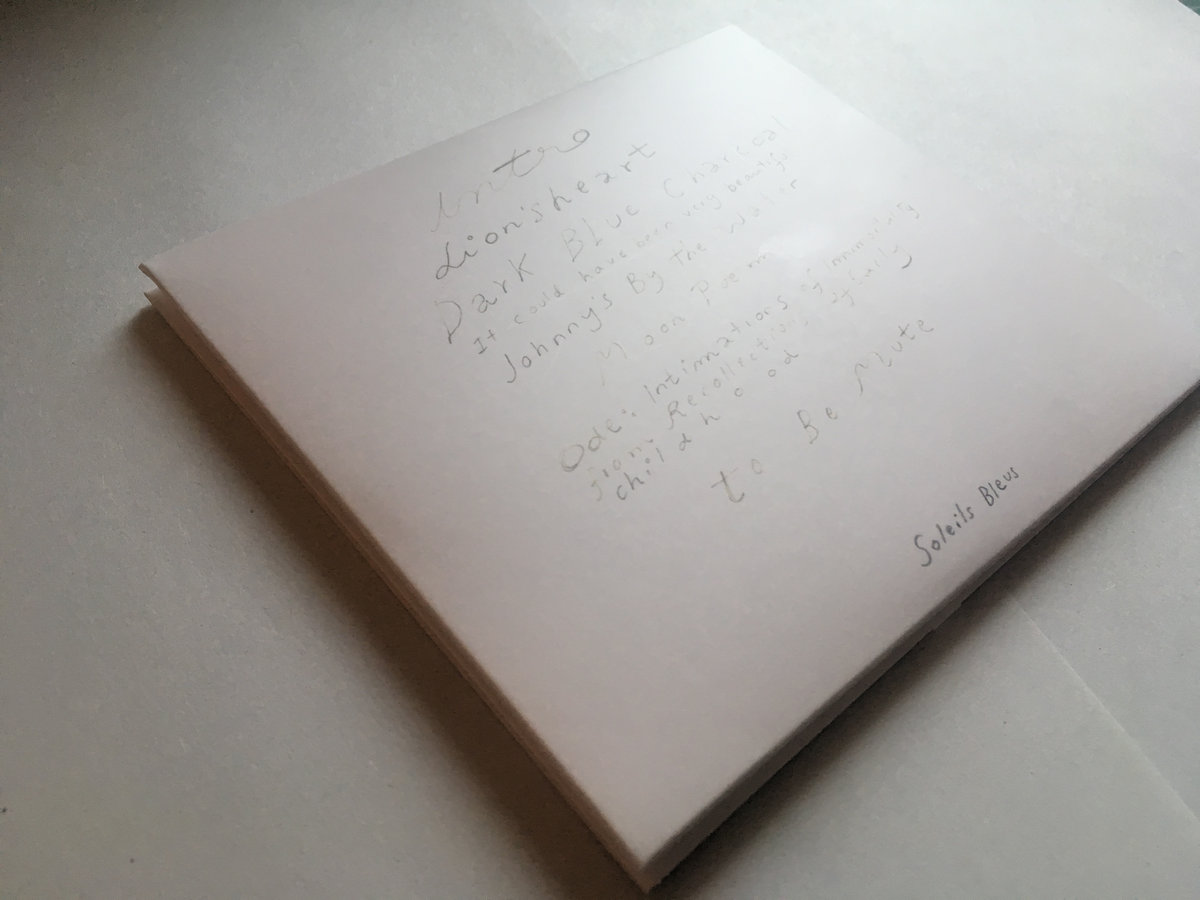 Intro
Lion'sheart
Dark Blue Charcoal
It could have been very beautiful
Johnny's By The Water
Moon Poem
Ode: Intimations of Immortality
from Recollections of Early
childhood
to Be Mute
Soleils Bleus